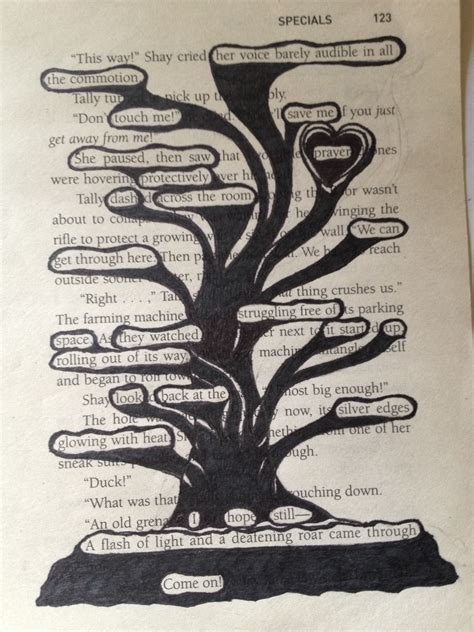 SPECIALS 123
“This way!” Shay cried, her voice barely audible in all
the commotion.
Tally pick up
“Don’t touch me!” save me if you just
get away from me!”
She paused, then saw that prayer
were hovering protectively over
Tally dash across the room, wasn’t
about to swinging the
rifle to protect a growing wall. “We can
get through here. Then We reach
outside
“Right . . . ,” thing crushes us.”
The farming machine struggling free of its parking
space. As they watched, next to it started up,
rolling out of its way,
and began to roll
Shay look back at the “ big enough!”
The hole now, its silver edges
glowing with heat. from one of her
sneak
“Duck!”
“What was that crouching down.
“An old I hope still—
A flash of light and a deafening roar came through
Come on!